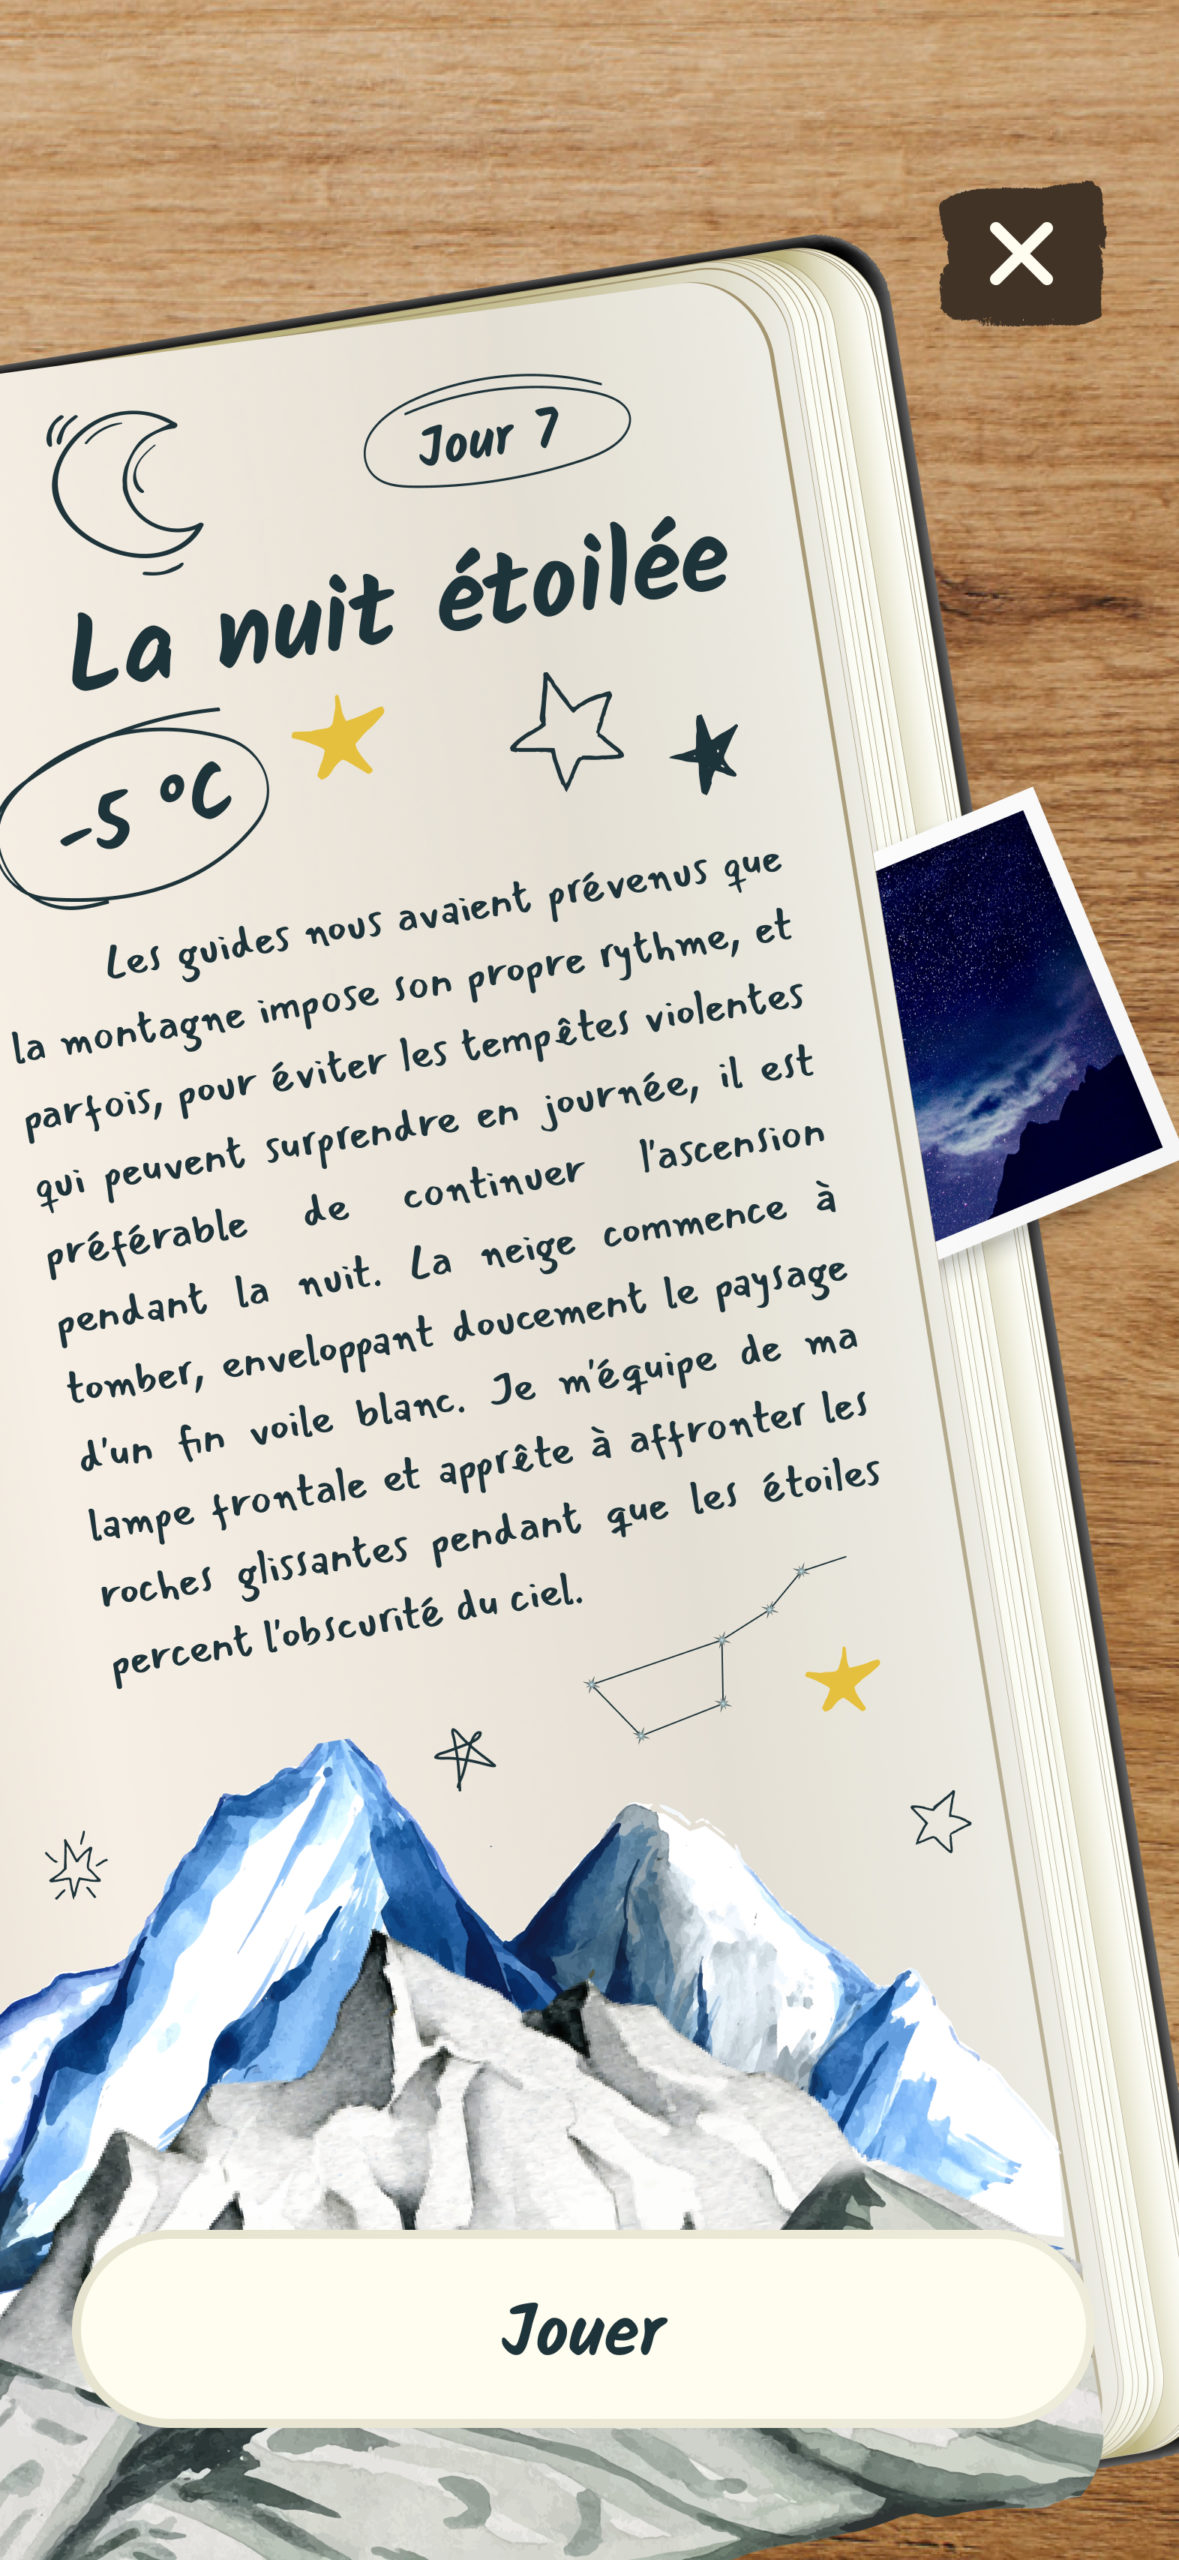 Jour 7
La nuit étoilée
-5 °C
Les guides nous avaient prévenus que
la montagne impose son propre rythme, et
parfois, pour éviter les tempêtes violentes
qui peuvent surprendre en journée, il est
préférable de continuer l'ascension
pendant la nuit. La neige commence à
tomber, enveloppant doucement le paysage
d'un fin voile blanc. Je m'équipe de ma
lampe frontale et apprête à affronter les
roches glissantes pendant que les étoiles
percent l'obscurité du ciel.
Jouer